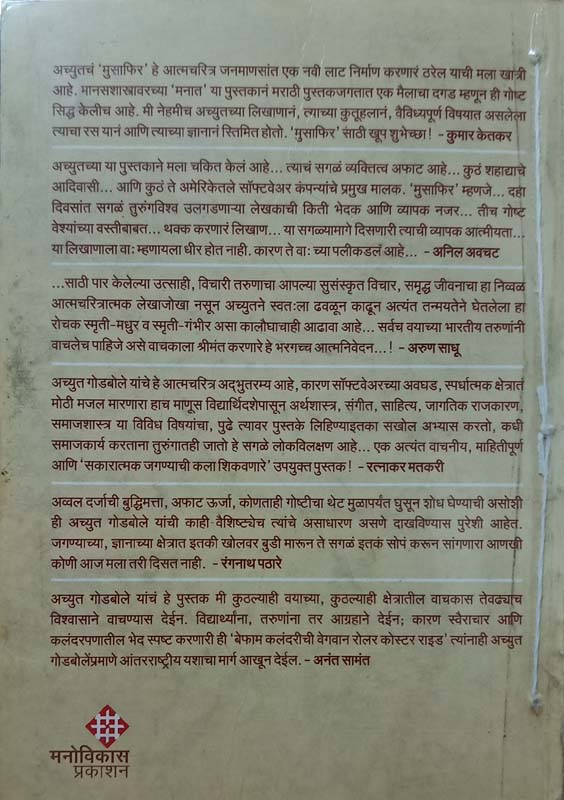 अच्युतचं ‘मुसाफिर’ हे आत्मचरित्र जनमाणसांत एक नवी लाट निर्माण करणारं ठरेल याची मला खात्री
आहे. मानसशास्त्रावरच्या ‘मनात’ या पुस्तकानं मराठी पुस्तकजगतात एक मैलाचा दगड म्हणून ही गोष्ट
सिद्ध केलीच आहे. मी नेहमीच अच्युतच्या लिखाणानं, त्याच्या कुतूहलानं, वैविध्यपूर्ण विषयात असलेला
त्याचा रस यानं आणि त्याच्या ज्ञानानं स्तिमित होतो. ‘मुसाफिर’ साठी खूप शुभेच्छा! - कुमार केतकर
अच्युतच्या या पुस्तकाने मला चकित केलं आहे... त्याचं सगळं व्यक्तित्व अफाट आहे... कुठं शहाद्याचे
आदिवासी... आणि कुठं ते अमेरिकेतले सॉफ्टवेअर कंपन्यांचे प्रमुख मालक. ‘मुसाफिर’ म्हणजे... दहा
दिवसांत सगळं तुरुंगविश्व उलगडणाऱ्या लेखकाची किती भेदक आणि व्यापक नजर... तीच गोष्ट
वेश्यांच्या वस्तीबाबत... थक्क करणारं लिखाण... या सगळ्यामागे दिसणारी त्याची व्यापक आत्मीयता...
या लिखाणाला वाः म्हणायला धीर होत नाही. कारण ते वाः च्या पलीकडलं आहे... - अनिल अवचट
...साठी पार केलेल्या उत्साही, विचारी तरुणाचा आपल्या सुसंस्कृत विचार, समृद्ध जीवनाचा हा निव्वळ
आत्मचरित्रात्मक लेखाजोखा नसून अच्युतने स्वतःला ढवळून काढून अत्यंत तन्मयतेने घेतलेला हा
रोचक स्मृती-मधुर व स्मृती-गंभीर असा कालौघाचाही आढावा आहे... सर्वच वयाच्या भारतीय तरुणांनी
वाचलेच पाहिजे असे वाचकाला श्रीमंत करणारे हे भरगच्च आत्मनिवेदन...! - अरुण साधू
अच्युत गोडबोले यांचे हे आत्मचरित्र अद्‌भुतरम्य आहे, कारण सॉफ्टवेअरच्या अवघड, स्पर्धात्मक क्षेत्रात
मोठी मजल मारणारा हाच माणूस विद्यार्थिदशेपासून अर्थशास्त्र, संगीत, साहित्य, जागतिक राजकारण,
समाजशास्त्र या विविध विषयांचा, पुढे त्यावर पुस्तके लिहिण्याइतका सखोल अभ्यास करतो, कधी
समाजकार्य करताना तुरुंगातही जातो हे सगळे लोकविलक्षण आहे... एक अत्यंत वाचनीय, माहितीपूर्ण
आणि ‘सकारात्मक जगण्याची कला शिकवणारे’ उपयुक्त पुस्तक! - रत्नाकर मतकरी
अव्वल दर्जाची बुद्धिमत्ता, अफाट ऊर्जा, कोणताही गोष्टीचा थेट मुळापर्यंत घुसून शोध घेण्याची असोशी
ही अच्युत गोडबोले यांची काही वैशिष्ट्येच त्यांचे असाधारण असणे दाखविण्यास पुरेशी आहेत.
जगण्याच्या, ज्ञानाच्या क्षेत्रात इतकी खोलवर बुडी मारून ते सगळं इतकं सोपं करून सांगणारा आणखी
कोणी आज मला तरी दिसत नाही. - रंगनाथ पठारे
अच्युत गोडबोले यांचं हे पुस्तक मी कुठल्याही वयाच्या, कुठल्याही क्षेत्रातील वाचकास तेवढ्याच
विश्वासाने वाचण्यास देईन. विद्यार्थ्यांना, तरुणांना तर आग्रहाने देईन; कारण स्वैराचार आणि
कलंदरपणातील भेद स्पष्ट करणारी ही ‘बेफाम कलंदरीची वेगवान रोलर कोस्टर राइड’ त्यांनाही अच्युत
गोडबोलेंप्रमाणे आंतरराष्ट्रीय यशाचा मार्ग आखून देईल. - अनंत सामंत
मनोविकास
प्रकाशन